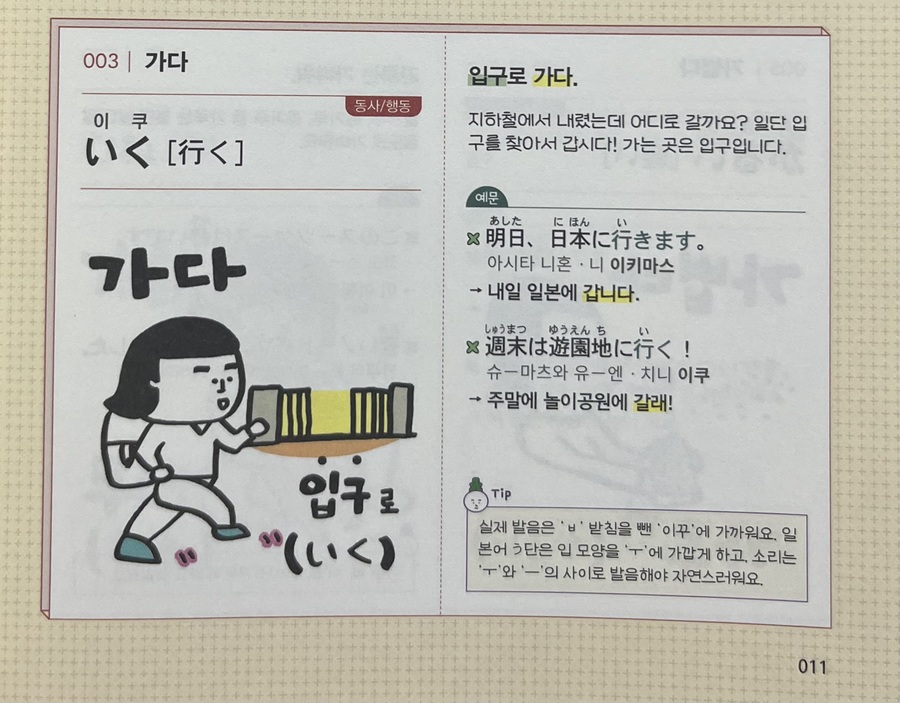 003 | 가다
동사/행동
이 쿠
いく [行く]
가다
입구로
(いく)
입구로 가다.
지하철에서 내렸는데 어디로 갈까요? 일단 입
구를 찾아서 갑시다! 가는 곳은 입구입니다.
예문
あした にほん い
明日、日本に行きます。
아시타 니혼·니 이키마스
→ 내일 일본에 갑니다.
しゅうまつ ゆうえんち い
週末は遊園地に行く！
슈ー마츠와 유ー엔·치니 이쿠
→ 주말에 놀이공원에 갈래!
Tip
실제 발음은 'ㅂ' 받침을 뺀 '이꾸'에 가까워요. 일
본어 う단은 입 모양을 'ㅜ'에 가깝게 하고, 소리는
'ㅜ'와 'ㅡ'의 사이로 발음해야 자연스러워요.
011